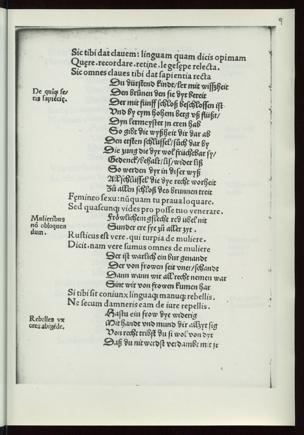 9
Sic tibi dat clauem: linguam quam dicis opimam
Quęre. recordare. retine. lege sępe relecta.
Sic omnes claues tibi dat sapientia recta
Du dürstend kinde/ ler mit wißheit
Den brunen den sie dyr bereit
Der mit fünff schloß beschlossen ist
Vnd by eym hohem berg vß flüßt/
Dyn lermeyster in eren hab
So gibt die wyßheit dir dar ab
Den ersten schlüssel/ such dar by
Die zung die dyr wol früchtbar sy/
Gedenck/ behalt/ lis/ wider liß
So werden dyr in diser wyß
All schlüssel die dyr recht worheit
Zů allen schloß des brunnen treit
Femineo sexu: nūquam tu praua loquare.
Sed quascunq; vides pro posse tuo venerare.
Mulieribus
nō obloquen
dum.
Frowlichem gslecht red übel nit
Sunder ere sye zů aller zyt.
Rusticus est vere. qui turpia de muliere.
Dicit. nam vere sumus omnes de muliere
Der ist warlich ein bur genant
Der von frowen seit vner/ schande
Dann wann wir all recht nemen war
Sint wir von frowen kumen har
Si tibi sit coniunx linguaq; manuq; rebellis.
Ne secum damneris eam de iure repellis.
Rebelles vx
ores
Hastu ein frow dye widerig
Mit handt vnd mund dir
Von recht tribst du si wol von dyr
Daß du nit werdst verdambt mit ir